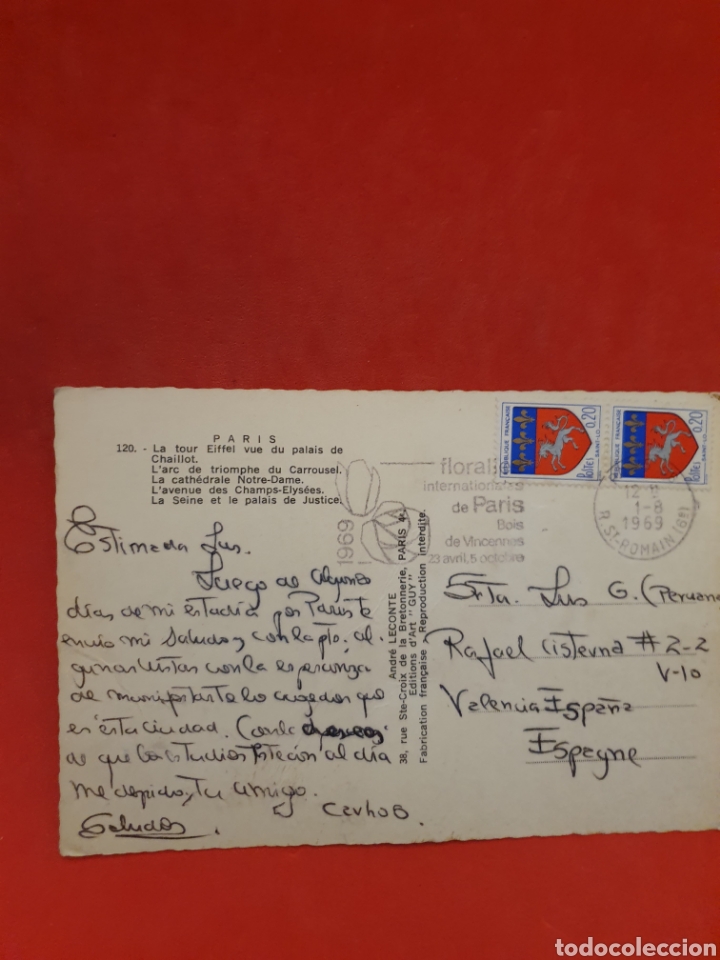 PARIS
120. - La tour Eiffel vue du palais de
Chaillot.
L'arc de triomphe du Carrousel.
La cathédrale Notre-Dame.
L'avenue des Champs-Elysées.
La Seine et le palais de Justice.
Estimada Lus.
Luego de algunos
días de mi estadía por Paris te
envio mi saludo y con la pto. al
gunas vistas con la esperanza
de manifestarte lo
es esta ciudad. Con los deseos
de que los estudios esten al día
me despido, tu amigo.
Saludos.
André LECONTE
38, rue Ste-Croix de la Bretonnerie, PARIS 4e
Editions d'Art "GUY"
Fabrication française - Reproduction interdite.
1969
floralies
internationales
de Paris
Bois
de Vincennes
23 avril, 5 octobre
REPUBLIQUE FRANÇAISE
0,20
SAINT-LO
REPUBLIQUE FRANÇAISE
0,20
SAINT-LO
1-8
1969
R. ST-ROMAIN (6e)
Srta. Lus G. (Peruana
Rafael Cisterna # 2-2
V-10
Valencia España
Espagne
todocoleccion